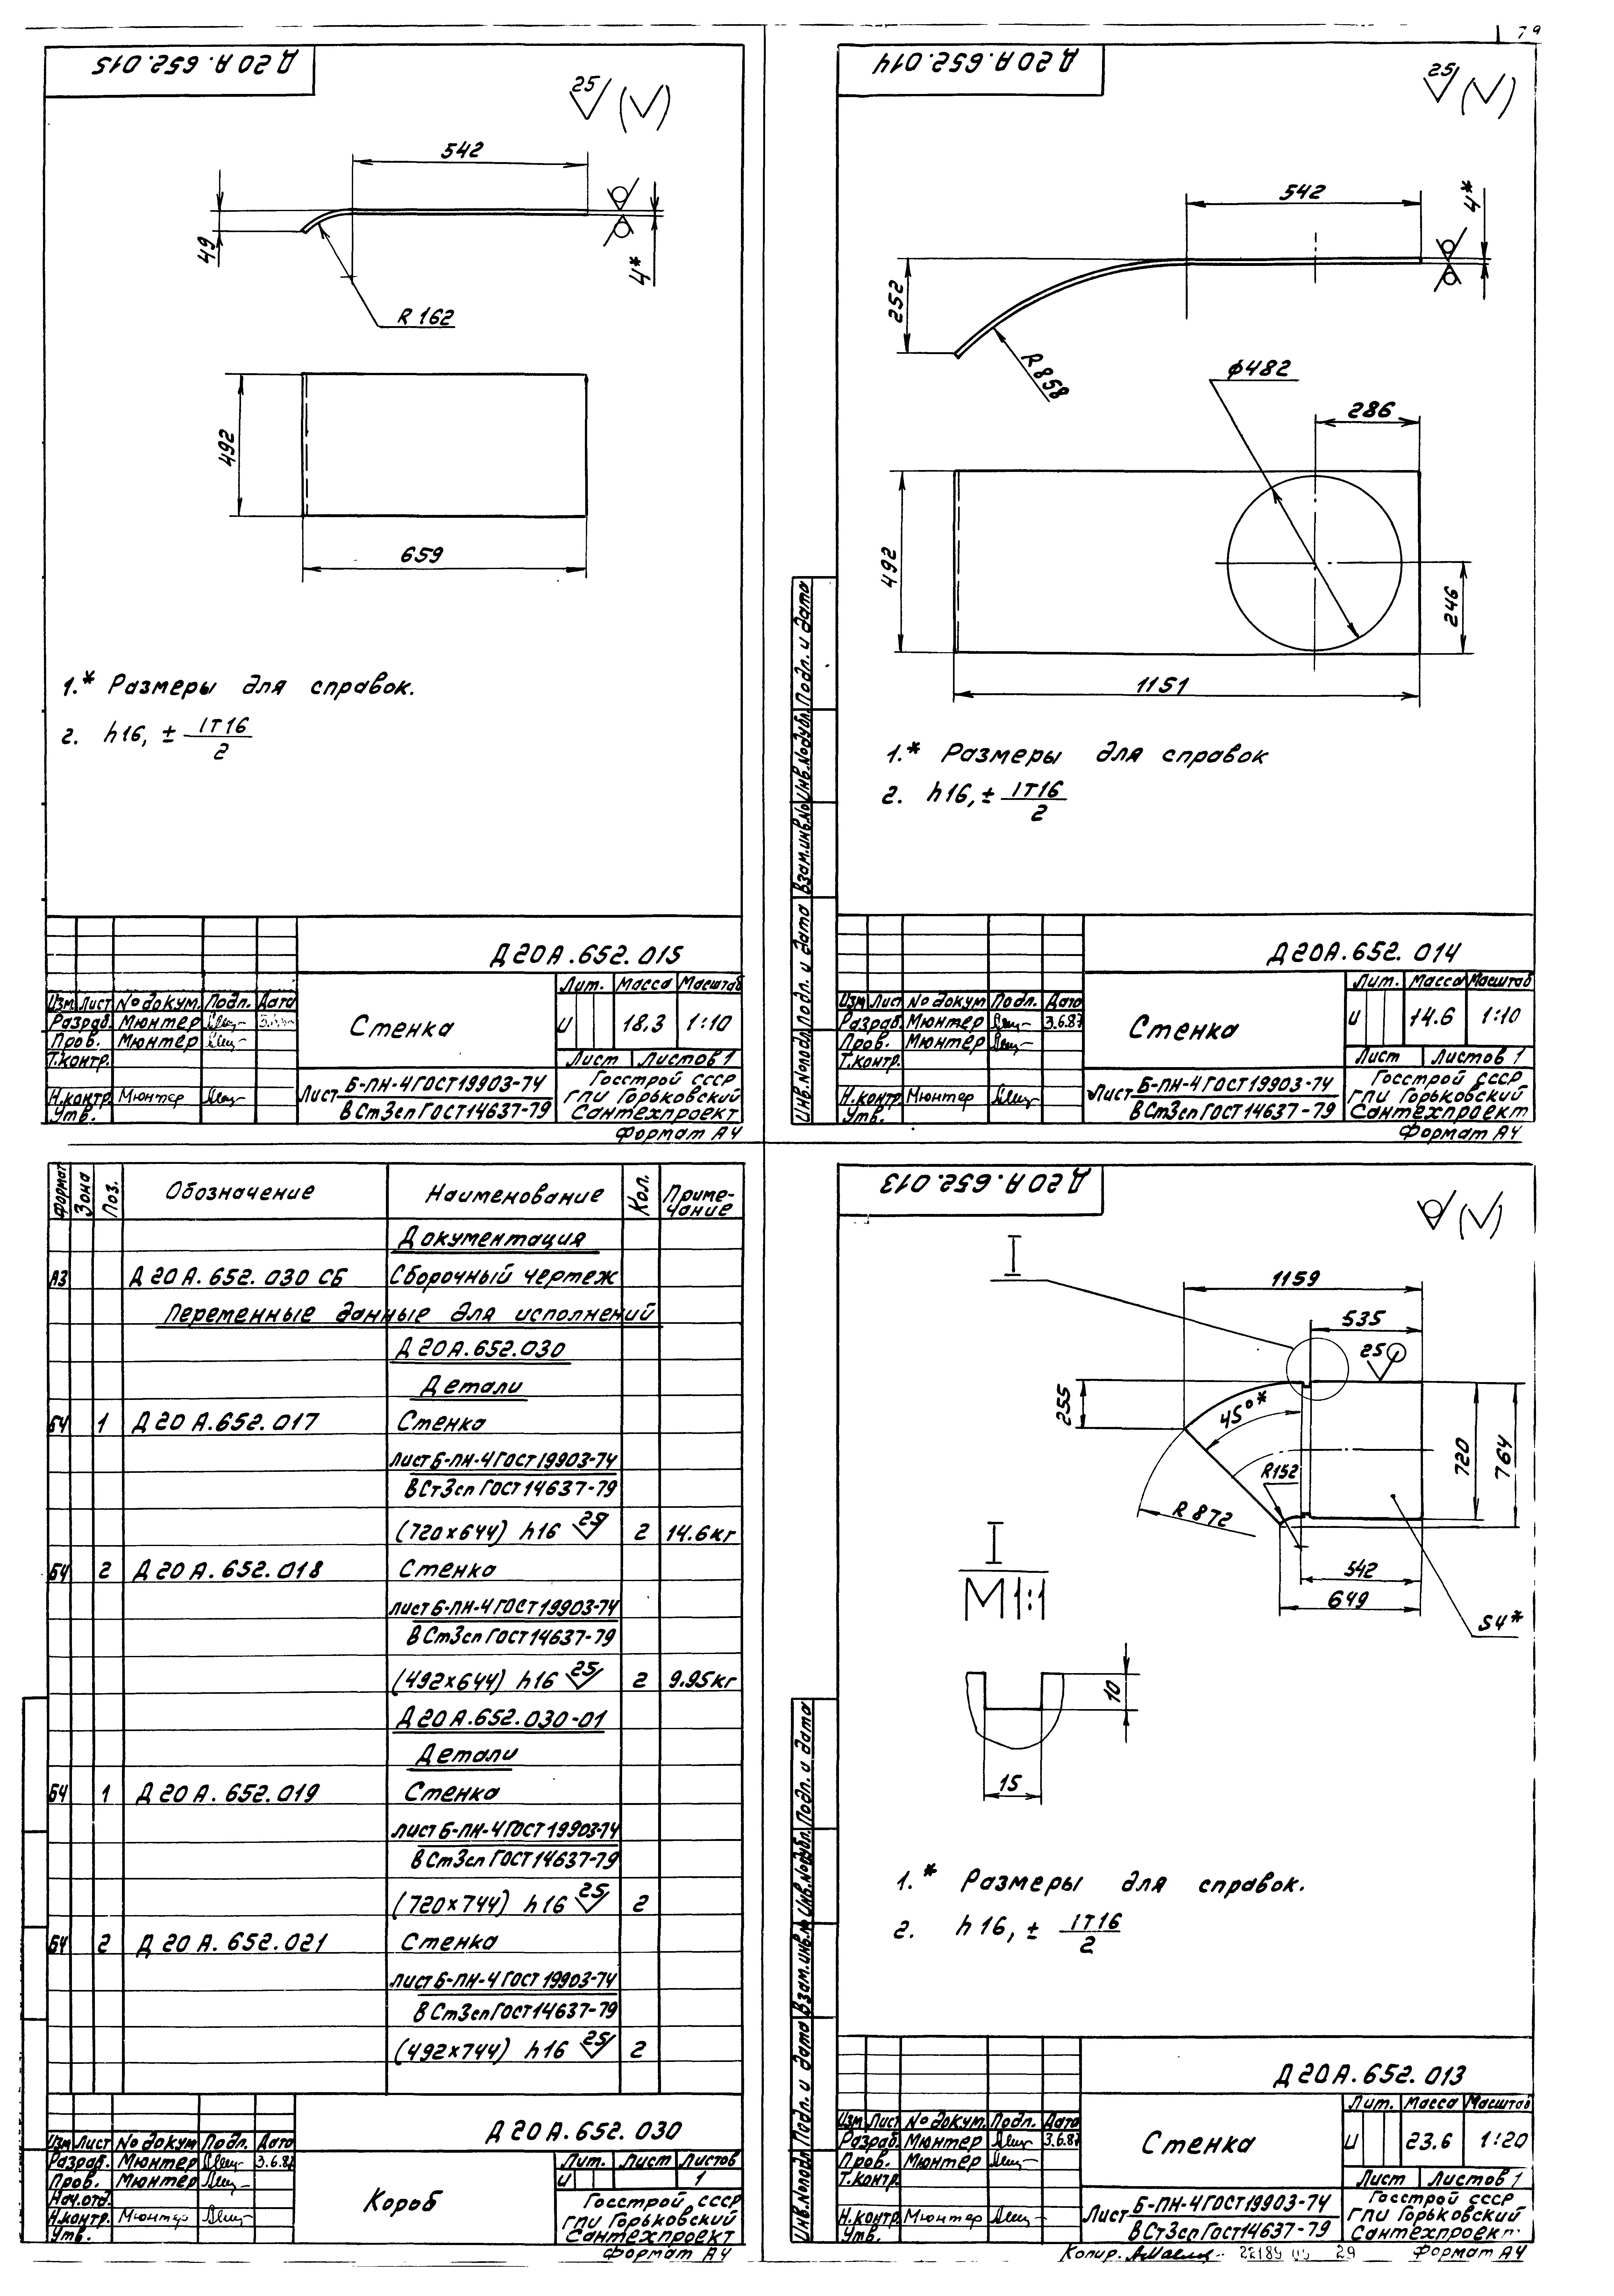 79
Д20А.652.015
25
542
49
4*
R 162
492
659
1.* Размеры для справок.
2. h16, ± IT16
2
Д20А.652.015
Изм. Лист № докум. Подп. Дата
Разраб. Мюнтер
Пров. Мюнтер
Т.контр.
Н.контр. Мюнтер
Утв.
Стенка
Лит. Масса Масштаб
И 18.3 1:10
Лист Листов 1
Лист Б-ПН-4 ГОСТ 19903-74
ВСт3сп ГОСТ 14637-79
Госстрой СССР
ГПИ Горьковский
Сантехпроект
Формат А4
Д20А.652.014
25
542
4*
252
R 858
ф482
286
492
246
1151
1.* Размеры для справок
2. h16, ± IT16
2
Инв.№подл. Подп. и дата Взам.инв.№ Инв.№дубл. Подп. и дата
Д20А.652.014
Изм. Лист № докум. Подп. Дата
Разраб. Мюнтер 3.6.87
Пров. Мюнтер
Т.контр.
Н.контр. Мюнтер
Утв.
Стенка
Лит. Масса Масштаб
И 14.6 1:10
Лист Листов 1
Лист Б-ПН-4 ГОСТ 19903-74
ВСт3сп ГОСТ 14637-79
Госстрой СССР
ГПИ Горьковский
Сантехпроект
Формат А4
Формат Зона Поз. Обозначение Наименование Кол. Приме-
чание
Документация
А3 Д20А.652.030 СБ Сборочный чертеж
Переменные данные для исполнений
Д20А.652.030
Детали
БЧ 1 Д20А.652.017 Стенка
Лист Б-ПН-4 ГОСТ 19903-74
ВСт3сп ГОСТ 14637-79
(720×644) h16 25 2 14.6кг
БЧ 2 Д20А.652.018 Стенка
Лист Б-ПН-4 ГОСТ 19903-74
ВСт3сп ГОСТ 14637-79
(492×644) h16 25 2 9.95кг
Д20А.652.030-01
Детали
БЧ 1 Д20А.652.019 Стенка
Лист Б-ПН-4 ГОСТ 19903-74
ВСт3сп ГОСТ 14637-79
(720×744) h16 25 2
БЧ 2 Д20А.652.021 Стенка
Лист Б-ПН-4 ГОСТ 19903-74
ВСт3сп ГОСТ 14637-79
(492×744) h16 25 2
Д20А.652.030
Изм. Лист № докум. Подп. Дата
Разраб. Мюнтер 3.6.87
Пров. Мюнтер
Нач.отд.
Н.контр. Мюнтер
Утв.
Короб
Лит. Лист Листов
И 1
Госстрой СССР
ГПИ Горьковский
Сантехпроект
Формат А4
Д20А.652.013
I
1159
535
25
255
45°*
R152
R 872
720
764
542
649
S4*
I
М1:1
10
15
1.* Размеры для справок.
2. h16, ± IT16
2
Инв.№подл. Подп. и дата Взам.инв.№ Инв.№дубл. Подп. и дата
Д20А.652.013
Изм. Лист № докум. Подп. Дата
Разраб. Мюнтер 3.6.87
Пров. Мюнтер
Т.контр.
Н.контр. Мюнтер
Утв.
Стенка
Лит. Масса Масштаб
И 23.6 1:20
Лист Листов 1
Лист Б-ПН-4 ГОСТ 19903-74
ВСт3сп ГОСТ 14637-79
Госстрой СССР
ГПИ Горьковский
Сантехпроект
Копир. 22189 29 Формат А4